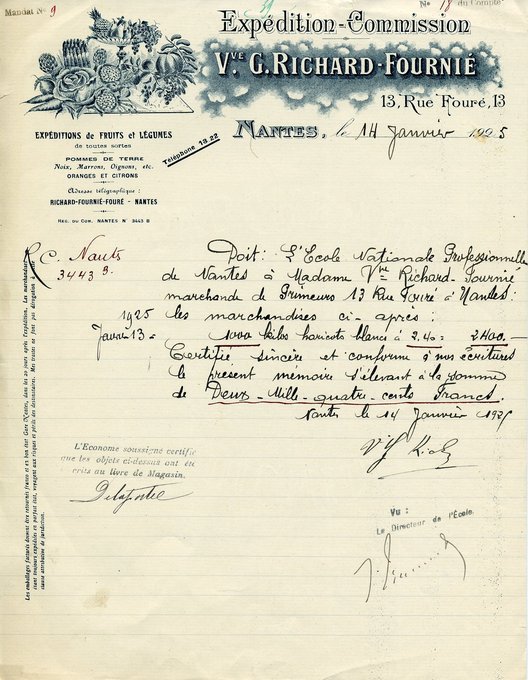 Mandat No 9
No 18 du Compte
Expédition-Commission
Vve G. RICHARD-FOURNIÉ
13, Rue Fouré, 13
NANTES, le 14 Janvier 1925
EXPÉDITIONS de FRUITS et LÉGUMES
de toutes sortes
POMMES DE TERRE
Noix, Marrons, Oignons, etc.
ORANGES ET CITRONS
Téléphone 13.22
Adresse télégraphique :
RICHARD-FOURNIÉ-FOURÉ - NANTES
REG. DU COM. NANTES N° 3443 B
R C. Nants
3443 B.
Doit: L'Ecole Nationale Professionnelle
de Nantes à Madame Vve Richard-Fournié
marchande de Primeurs 13 Rue Fouré à Nantes:
les marchandises ci-après:
1925
Janvier 13 = 1000 kilos haricots blancs à 2.40 = 2400.—
Certifié sincère et conforme à nos écritures
le présent mémoire s'élevant à la somme
de Deux-Mille-quatre-cents Francs.
Nantes le 14 Janvier 1925
L'Econome soussigné certifie
que les objets ci-dessus ont été
crits au livre de Magasin.
Delaportee
Vu :
Le Directeur de l'École.
Les emballages facturés doivent être retournés franco et en bon état Gare Nantes, dans les 20 jours après l'expédition. Les marchandises
étant toujours expédiées en parfait état, voyagent aux risques et périls des destinataires. Mes traites ne font pas dérogation à cette
clause attributive de juridiction.